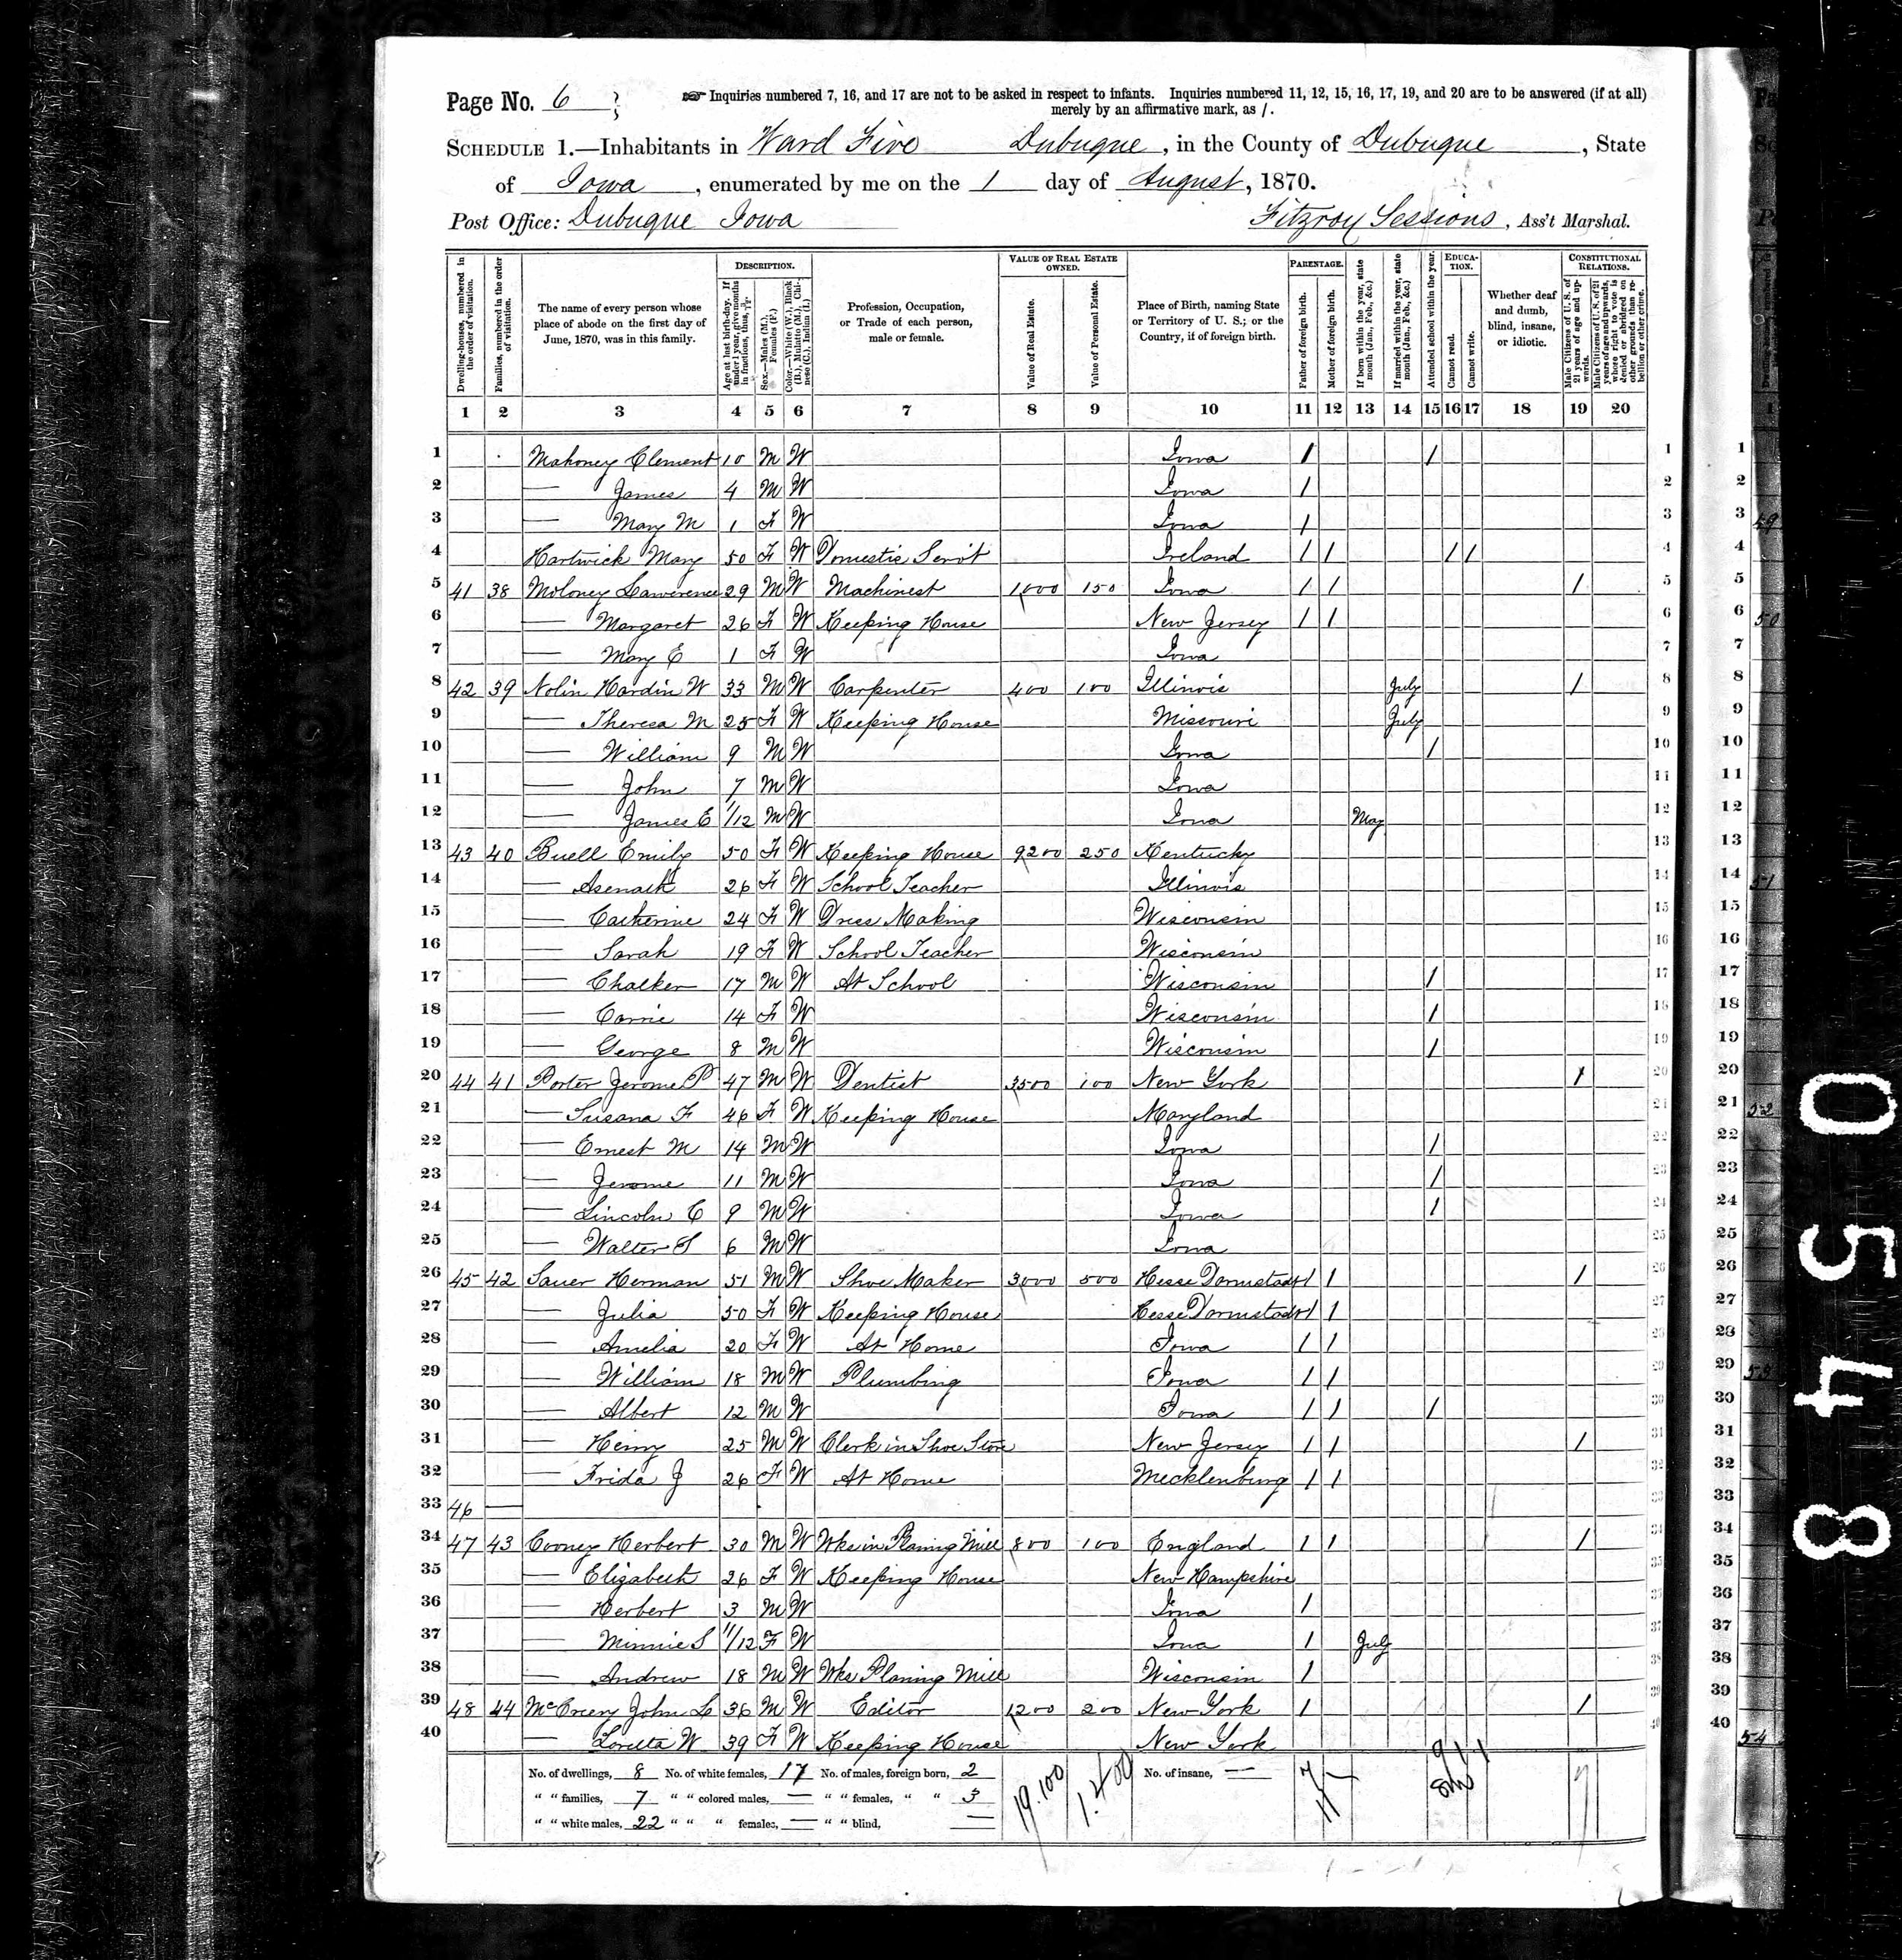 Page No. 6 Inquiries numbered 7, 16, and 17 are not to be asked in respect to infants. Inquiries numbered 11, 12, 15, 16, 17, 19, and 20 are to be answered (if at all)
merely by an affirmative mark, as /.
SCHEDULE 1.—Inhabitants in Ward Five Dubuque, in the County of Dubuque, State
of Iowa, enumerated by me on the 1 day of August, 1870.
Post Office: Dubuque Iowa Fitzroy Sessions, Ass't Marshal.
Dwelling-houses, numbered in the order of visitation.
Families, numbered in the order of visitation.
The name of every person whose place of abode on the first day of June, 1870, was in this family.
DESCRIPTION.
Age at last birth-day. If under 1 year, give months in fractions, thus, 3/12.
Sex.—Males (M.), Females (F.)
Color.—White (W.), Black (B.), Mulatto (M.), Chinese (C.), Indian (I.)
Profession, Occupation, or Trade of each person, male or female.
VALUE OF REAL ESTATE OWNED.
Value of Real Estate.
Value of Personal Estate.
Place of Birth, naming State or Territory of U. S.; or the Country, if of foreign birth.
PARENTAGE.
Father of foreign birth.
Mother of foreign birth.
If born within the year, state month (Jan., Feb., &c.)
If married within the year, state month (Jan., Feb., &c.)
Attended school within the year.
EDUCATION.
Cannot read.
Cannot write.
Whether deaf and dumb, blind, insane, or idiotic.
CONSTITUTIONAL RELATIONS.
Male Citizens of U. S. of 21 years of age and upwards.
Male Citizens of U. S. of 21 years of age and upwards, whose right to vote is denied or abridged on other grounds than rebellion or other crime.
1 2 3 4 5 6 7 8 9 10 11 12 13 14 15 16 17 18 19 20
1 Mahoney Clement 10 M W Iowa / / 1
2 — James 4 M W Iowa / 2
3 — Mary M 1 F W Iowa / 3
4 Hartwick Mary 50 F W Domestic Servt Ireland / / / / 4
5 41 38 Moloney Lawerence 29 M W Machinest 1000 150 Iowa / / / 5
6 — Margaret 26 F W Keeping House New Jersey / / 6
7 — Mary E 1 F W Iowa 7
8 42 39 Nolin Hardin W 33 M W Carpenter 400 100 Illinois July / 8
9 — Theresa M 25 F W Keeping House Missouri July 9
10 — William 9 M W Iowa / 10
11 — John 7 M W Iowa 11
12 — James E 1/12 M W Iowa May 12
13 43 40 Buell Emily 50 F W Keeping House 9200 250 Kentucky 13
14 — Asenath 26 F W School Teacher Illinois 14
15 — Catherine 24 F W Dress Making Wisconsin 15
16 — Sarah 19 F W School Teacher Wisconsin 16
17 — Chalker 17 M W At School Wisconsin / 17
18 — Carrie 14 F W Wisconsin / 18
19 — George 8 M W Wisconsin / 19
20 44 41 Porter Jerome P 47 M W Dentist 3500 100 New York / 20
21 — Susana F 46 F W Keeping House Maryland 21
22 — Ernest M 14 M W Iowa / 22
23 — Jerome 11 M W Iowa / 23
24 — Lincoln C 9 M W Iowa / 24
25 — Walter S 6 M W Iowa 25
26 45 42 Sauer Herman 51 M W Shoe Maker 3000 500 Hesse Darmstadt / / / 26
27 — Julia 50 F W Keeping House Hesse Darmstadt / / 27
28 — Amelia 20 F W At Home Iowa / / 28
29 — William 18 M W Plumbing Iowa / / 29
30 — Albert 12 M W Iowa / / / 30
31 — Henry 25 M W Clerk in Shoe Store New Jersey / / / 31
32 — Frida J 26 F W At Home Mecklenburg / / 32
33 46 — 33
34 47 43 Cooney Herbert 30 M W Wks in Planing Mill 800 100 England / / / 34
35 — Elizabeth 26 F W Keeping House New Hampshire 35
36 — Herbert 3 M W Iowa / 36
37 — Minnie S 11/12 F W Iowa / July 37
38 — Andrew 18 M W Wks Planing Mill Wisconsin / 38
39 48 44 McCreery John L 36 M W Editor 1200 200 New York / / 39
40 — Loretta W 39 F W Keeping House New York 40
No. of dwellings, 8 No. of white females, 17 No. of males, foreign born, 2 19.100 1.400 No. of insane, —
" " families, 7 " " colored males, — " " females, " " 3
" " white males, 22 " " " females, — " " blind, —
0548